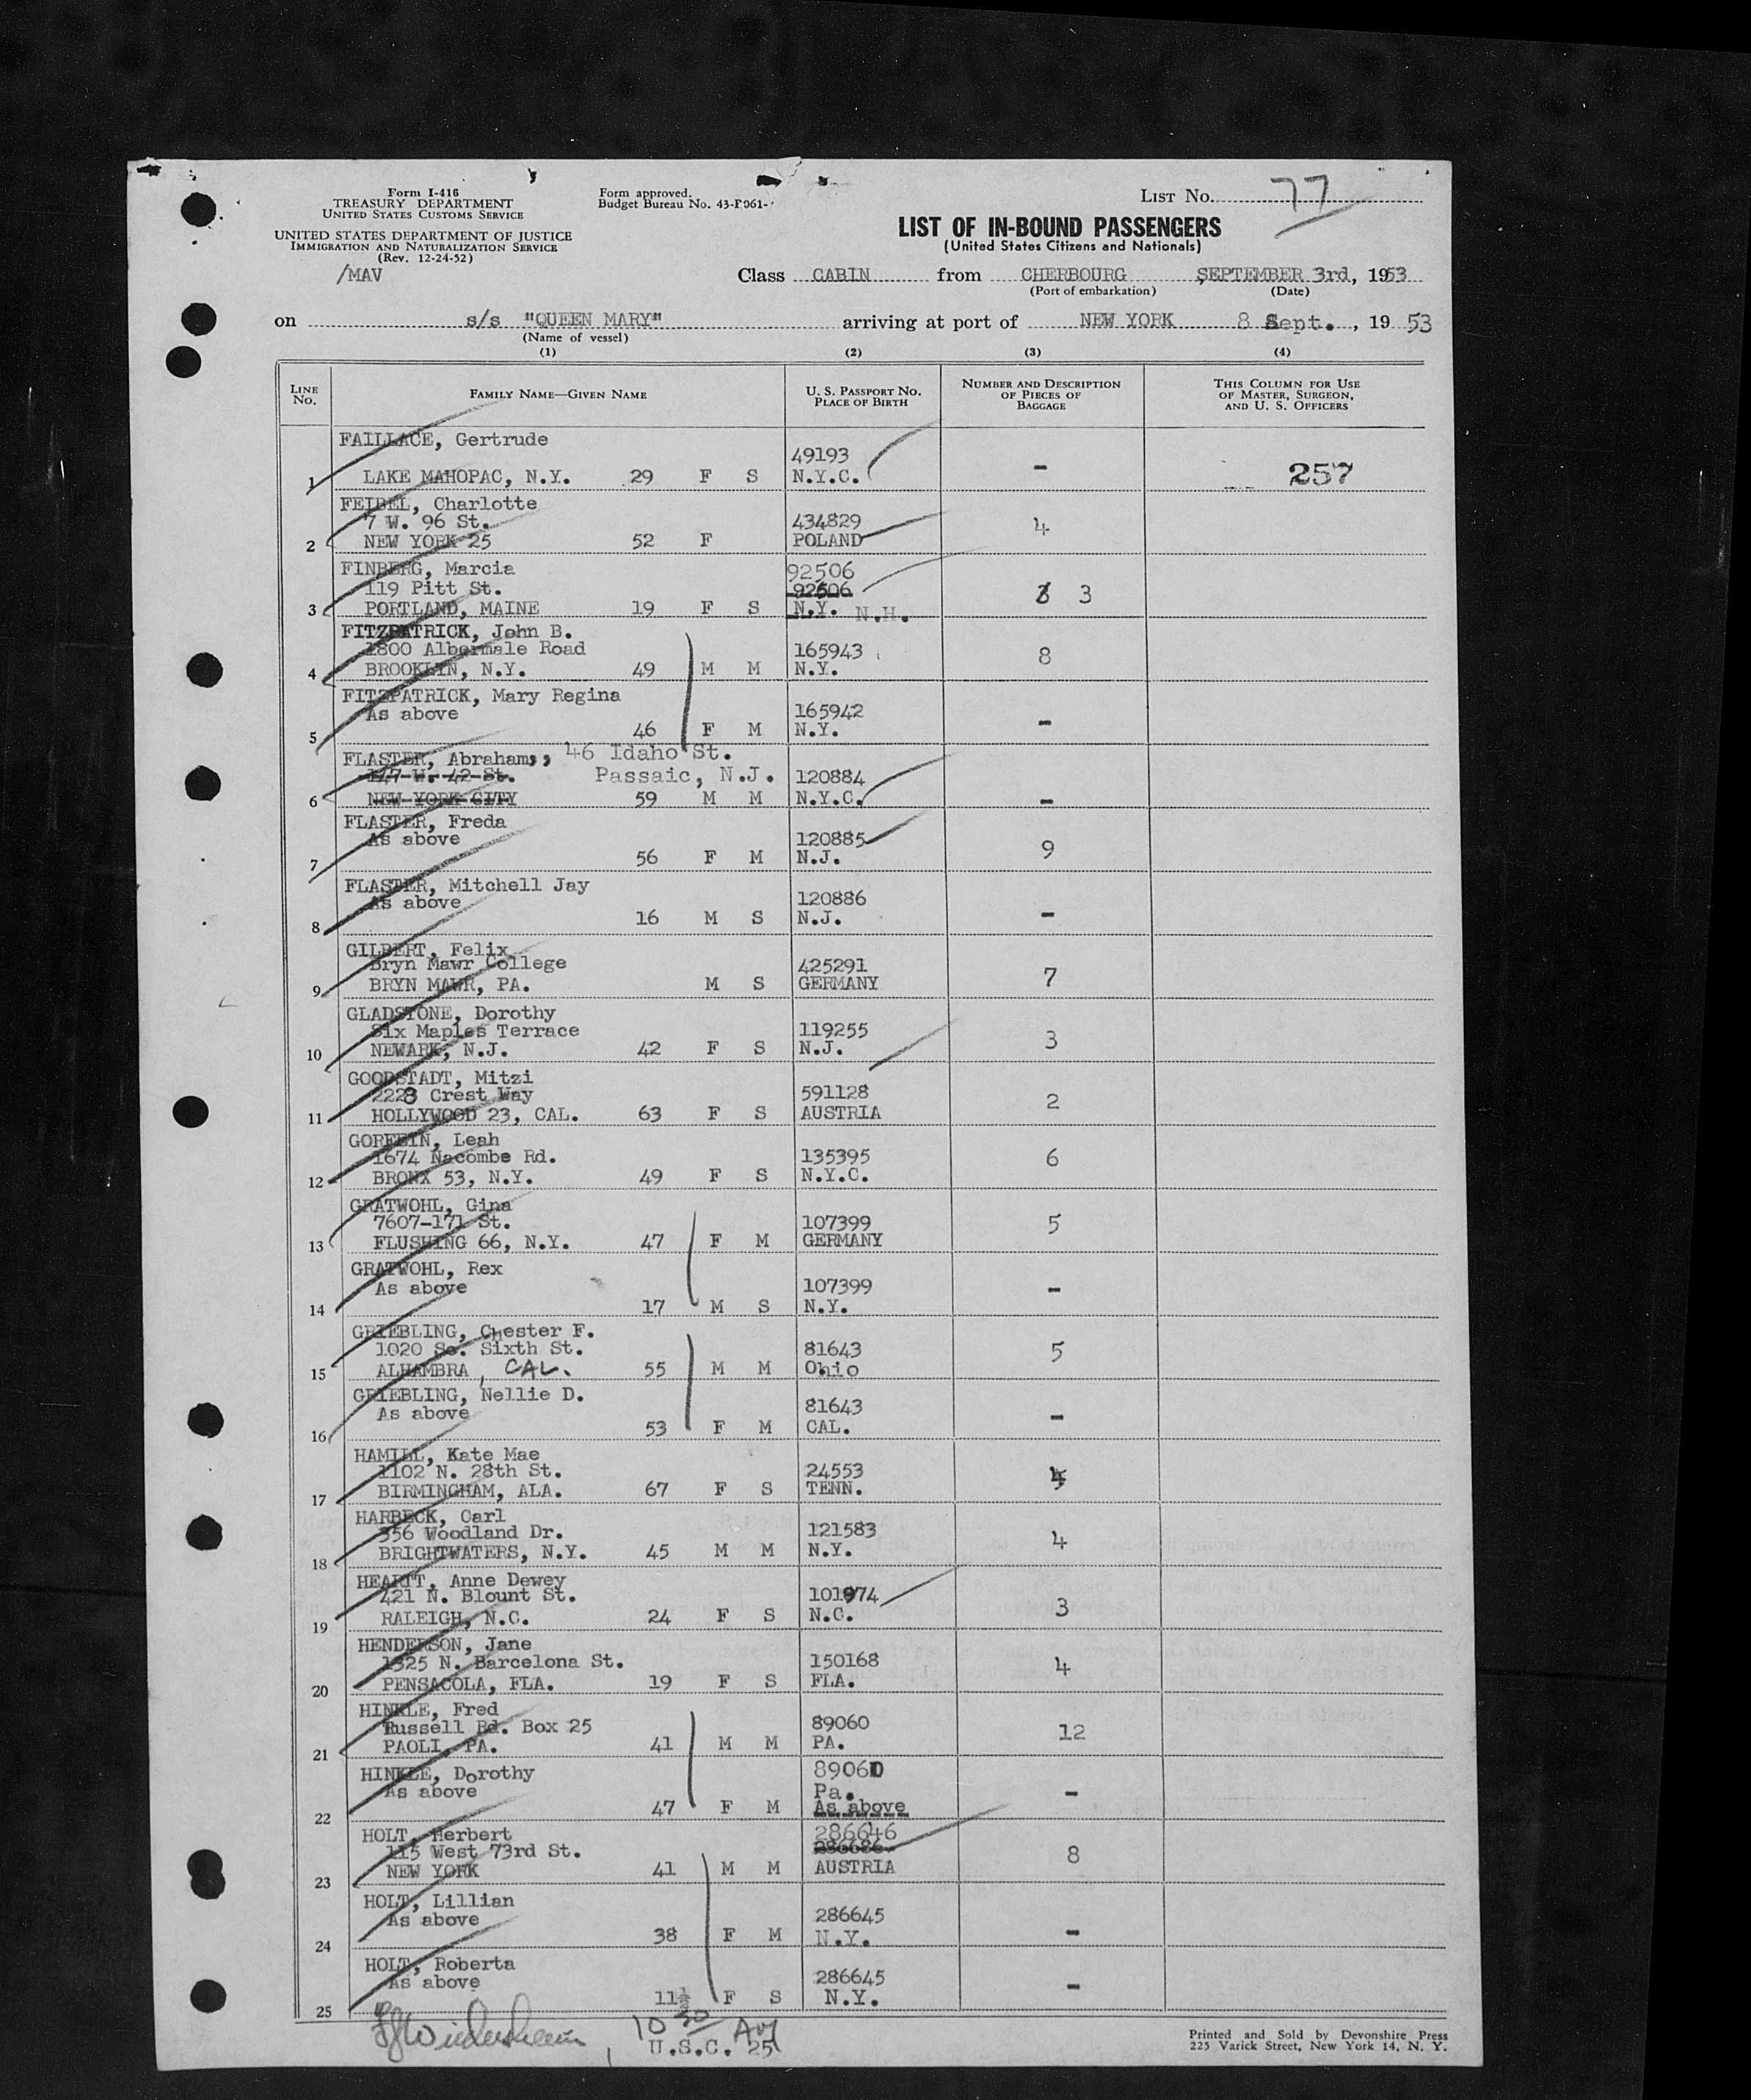 Form I-416
TREASURY DEPARTMENT
UNITED STATES CUSTOMS SERVICE
UNITED STATES DEPARTMENT OF JUSTICE
IMMIGRATION AND NATURALIZATION SERVICE
(Rev. 12-24-52)
/MAV
Form approved.
Budget Bureau No. 43-
LIST No. 77
LIST OF IN-BOUND PASSENGERS
(United States Citizens and Nationals)
Class CABIN from CHERBOURG SEPTEMBER 3rd, 1953
(Port of embarkation) (Date)
on s/s "QUEEN MARY" arriving at port of NEW YORK 8 Sept., 19 53
(Name of vessel)
(1) (2) (3) (4)
LINE No. FAMILY NAME—GIVEN NAME U. S. PASSPORT NO. PLACE OF BIRTH NUMBER AND DESCRIPTION OF PIECES OF BAGGAGE THIS COLUMN FOR USE OF MASTER, SURGEON, AND U. S. OFFICERS
FAILLACE, Gertrude
49193
1 LAKE MAHOPAC, N.Y. 29 F S N.Y.C. - 257
FEIBEL, Charlotte
7 W. 96 St. 434829 4
2 NEW YORK 25 52 F POLAND
FINBERG, Marcia 92506
119 Pitt St. 92606 3
3 PORTLAND, MAINE 19 F S N.Y. N.H.
FITZPATRICK, John B.
1800 Albermale Road 165943 8
4 BROOKLYN, N.Y. 49 M M N.Y.
FITZPATRICK, Mary Regina
As above 165942
5 46 F M N.Y. -
FLASTER, Abraham,, 46 Idaho St.
147 W. 42 St. Passaic, N.J. 120884
6 NEW YORK CITY 59 M M N.Y.C. -
FLASTER, Freda
As above 120885 9
7 56 F M N.J.
FLASTER, Mitchell Jay
As above 120886
8 16 M S N.J. -
GILBERT, Felix
Bryn Mawr College 425291 7
9 BRYN MAWR, PA. M S GERMANY
GLADSTONE, Dorothy
Six Maples Terrace 119255 3
10 NEWARK, N.J. 42 F S N.J.
GOODSTADT, Mitzi
2223 Crest Way 591128 2
11 HOLLYWOOD 23, CAL. 63 F S AUSTRIA
Leah
1674 Nacombe Rd. 135395 6
12 BRONX 53, N.Y. 49 F S N.Y.C.
GRATWOHL, Gina
7607-171 St. 107399 5
13 FLUSHING 66, N.Y. 47 F M GERMANY
GRATWOHL, Rex
As above 107399 -
14 17 M S N.Y.
GRIEBLING, Chester F.
1020 So. Sixth St. 81643 5
15 ALHAMBRA, CAL. 55 M M Ohio
GRIEBLING, Nellie D.
As above 81643 -
16 53 F M CAL.
HAMILL, Kate Mae
1102 N. 28th St. 24553
17 BIRMINGHAM, ALA. 67 F S TENN.
HARBECK, Carl
356 Woodland Dr. 121583 4
18 BRIGHTWATERS, N.Y. 45 M M N.Y.
HEARTT, Anne Dewey
421 N. Blount St. 101974 3
19 RALEIGH, N.C. 24 F S N.C.
HENDERSON, Jane
1325 N. Barcelona St. 150168 4
20 PENSACOLA, FLA. 19 F S FLA.
HINKLE, Fred
Russell Rd. Box 25 89060 12
21 PAOLI, PA. 41 M M PA.
HINKLE, Dorothy 89060
As above Pa. -
22 47 F M As above
HOLT, Herbert 286646
115 West 73rd St. 286686 8
23 NEW YORK 41 M M AUSTRIA
HOLT, Lillian
As above 286645
24 38 F M N.Y. -
HOLT, Roberta
As above 286645 -
25 11½ F S N.Y.
10 30
U.S.C. 25
Printed and Sold by Devonshire Press
225 Varick Street, New York 14, N. Y.